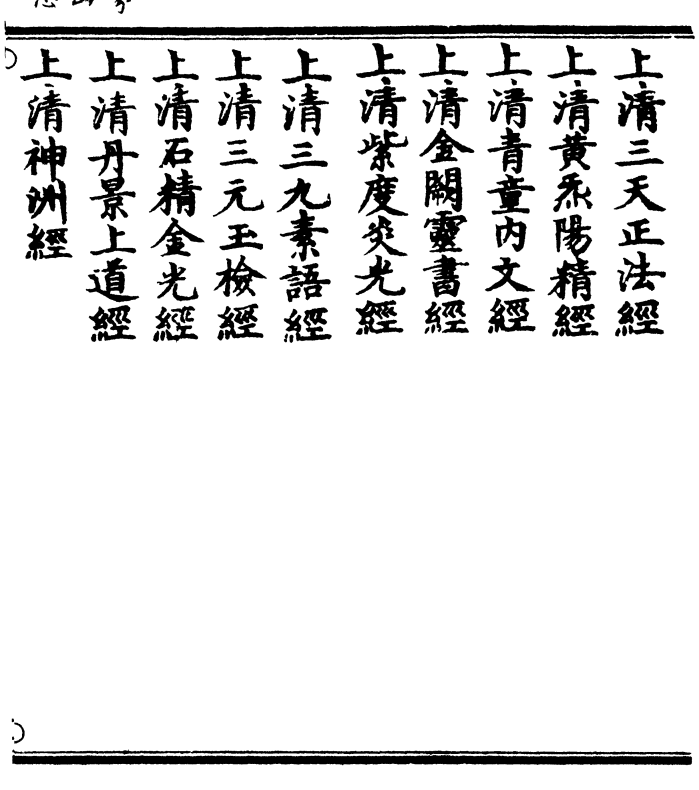 上清三天正法經
上清黃炁陽精經
上清青童內文經
上清金闕靈書經
上清紫度炎光經
上清三九素語經
上清三元玉檢經
上清石精金光經
上清丹景上道經
上清神洲經